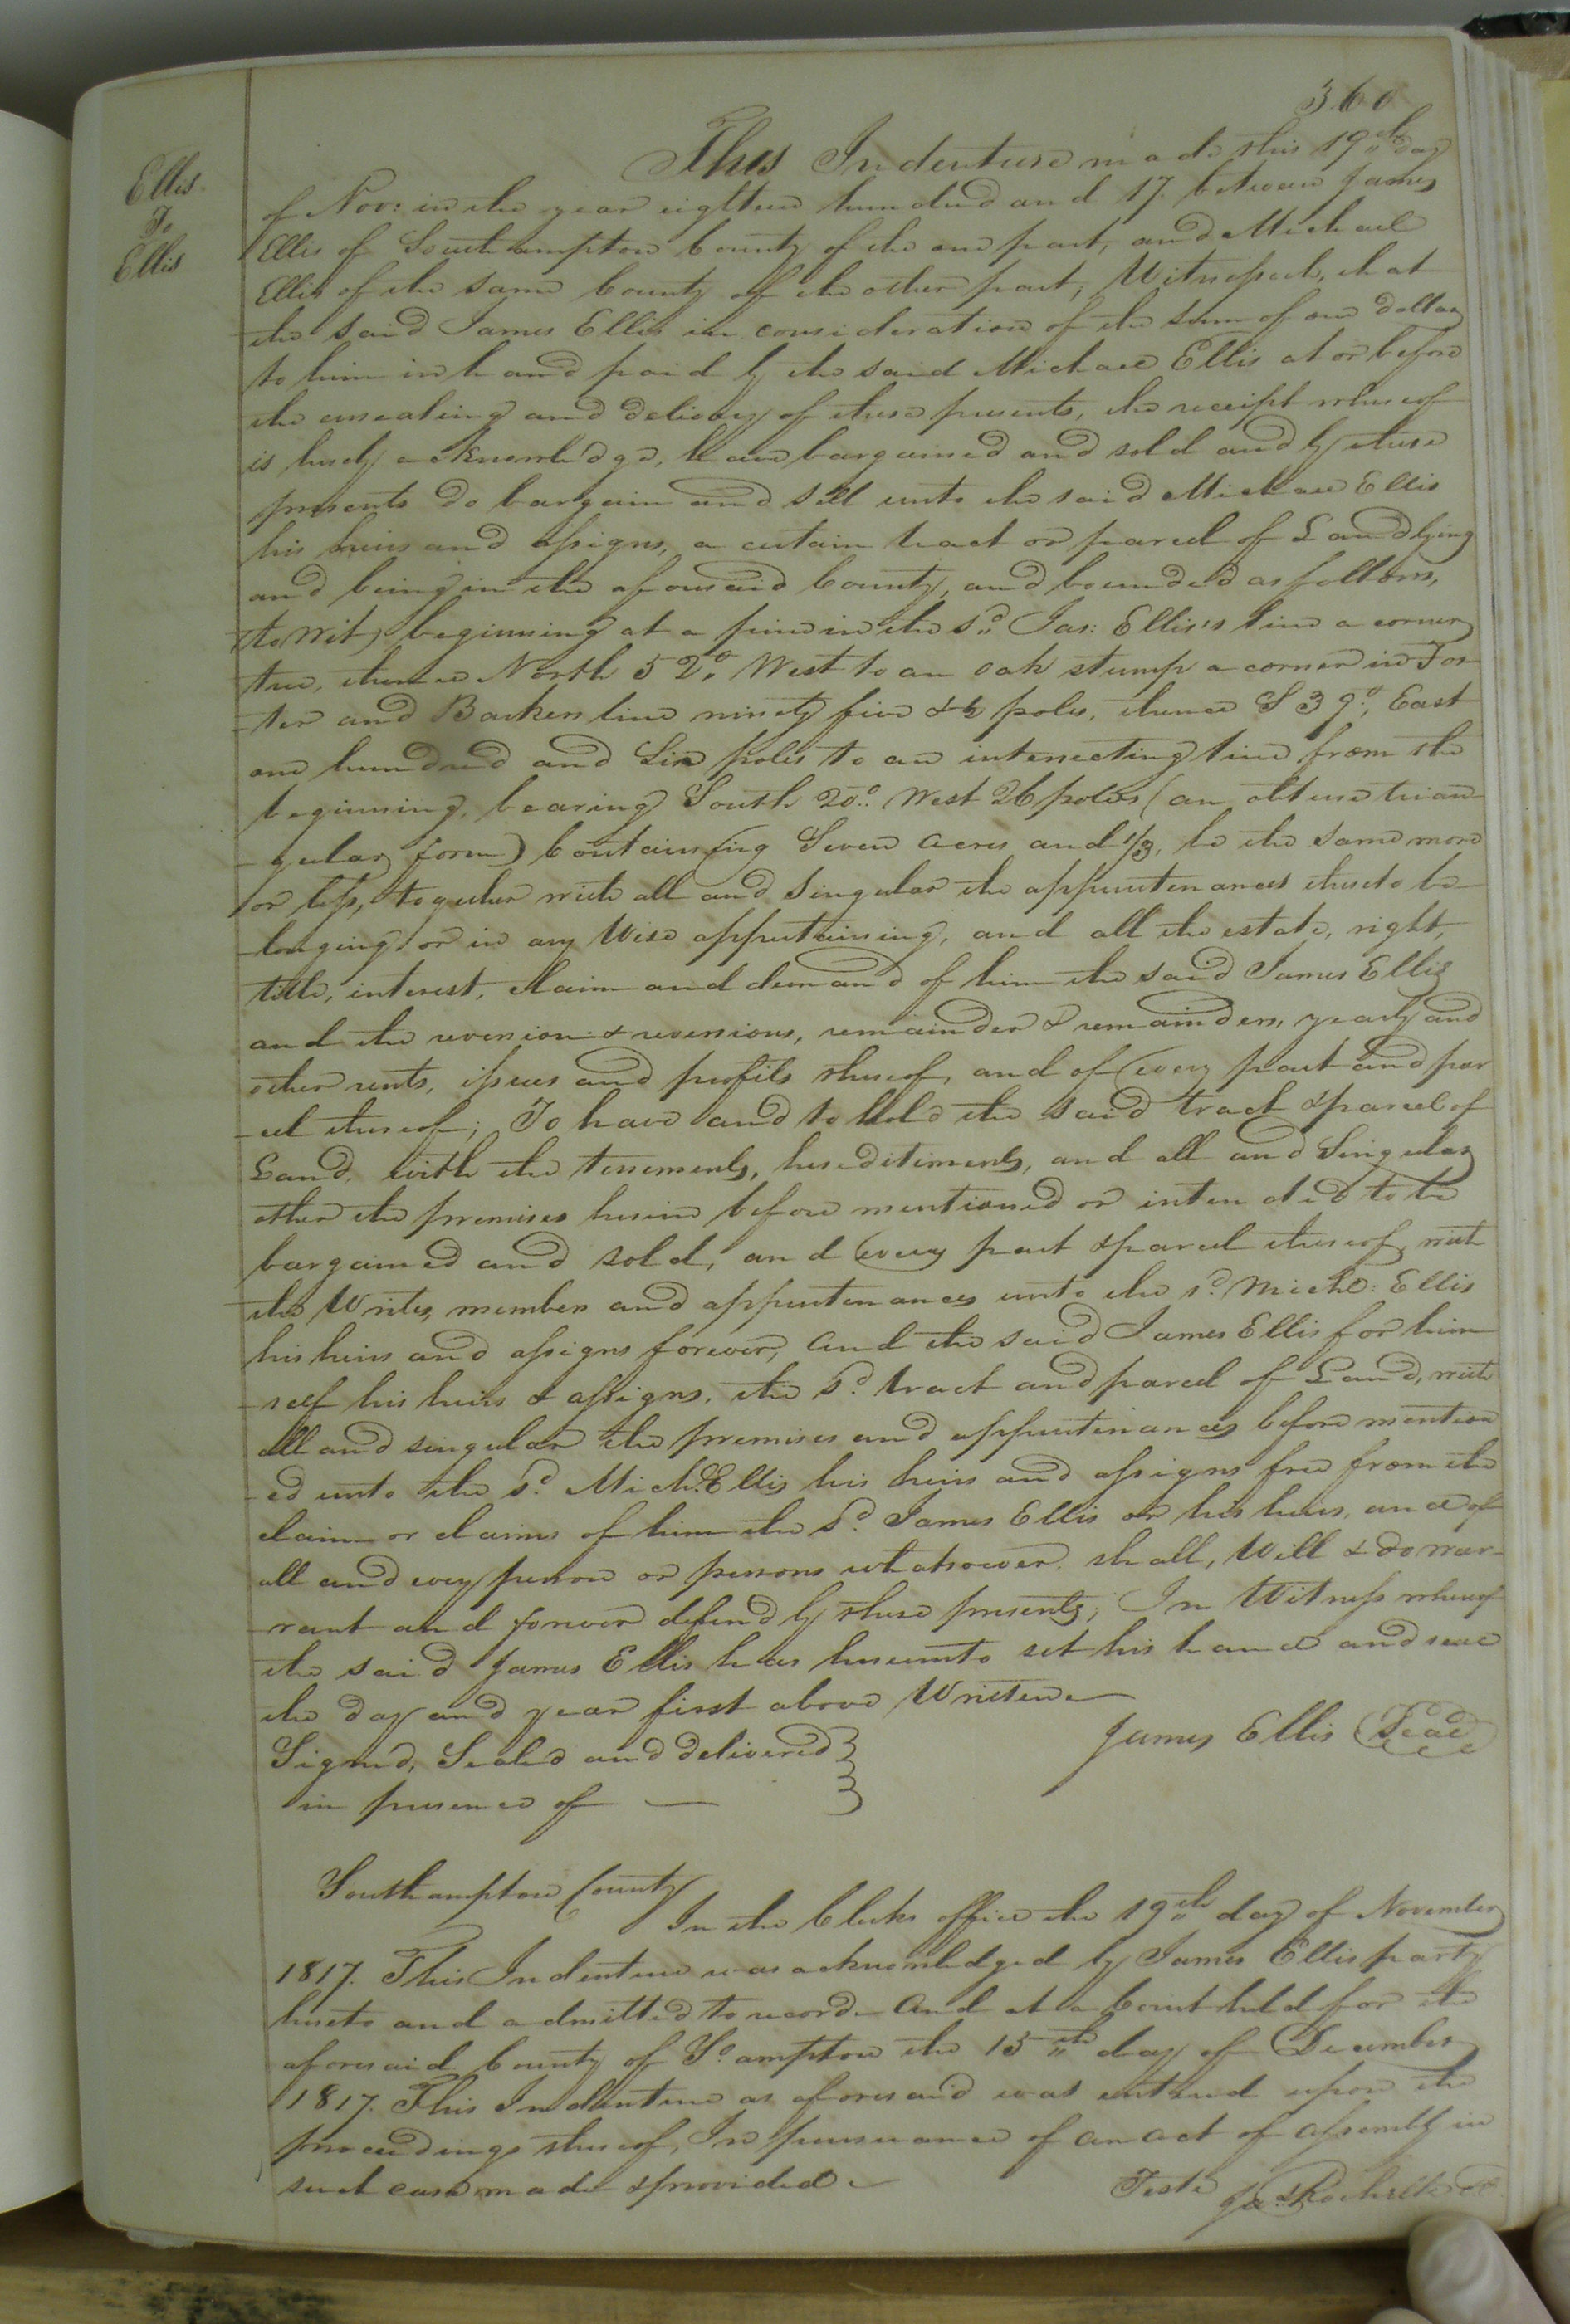 360
Ellis
To
Ellis
This Indenture made this 19th day
of Nov: in the year eighteen hundred and 17. between James
Ellis of Southampton County of the one part, and Michael
Ellis of the same County of the other part, Witnesseth, that
the said James Ellis in consideration of the sum of one dollar
to him in hand paid by the said Michael Ellis at or before
the ensealing and delivery of these presents, the receipt whereof
is hereby acknowledge, have bargained and sold and by these
presents do bargain and sell unto the said Michael Ellis
his heirs and assigns, a certain tract or parcel of Land lying
and being in the aforesaid County, and bounded as follows,
(to wit) beginning at a pine in the sd. Jas: Ellis's line a corner
tree, thence North 52° West to an oak stump a corner in
-ter and Barkers line ninety five poles, thence S 39° East
one hundred and Six poles to an intersecting line from the
beginning, bearing South 20° West 26 poles (an obtuse trian-
-gular form) Containing Seven acres and 1/3, be the same more
or less, together with all and Singular the appurtenances thereto be-
-longing or in any Wise appertaining, and all the estate, right,
title, interest, claim and demand of him the said James Ellis
and the reversion & reversions, remainder & remainders, yearly and
other rents, issues and profits thereof, and of every part and par
-cel thereof; To have and to hold the said tract & parcel of
Land, with the tenements, hereditiments, and all and Singular
other the premises herein before mentioned or intended to be
bargained and sold, and every part & parcel thereof, with
the Writes, members and appurtenances unto the sd. Michl: Ellis
his heirs and assigns forever, and the said James Ellis for him
-self his heirs & assigns, the sd. tract and parcel of Land, with
all and singular the premises and appurtinances before mention
-ed unto the sd. Michl. Ellis his heirs and assigns free from the
claim or claims of him the sd. James Ellis or his heirs, and of
all and every person or persons whatsoever. shall, Will & do war-
-rant and forever defend by these presents; In Witness whereof
the said James Ellis has hereunto set his hand and seal
the day and year first above Written
Signed, Sealed and delivered
in presence of —
James Ellis Seal
Southampton County
In the Clerks office the 19th day of November
1817. This Indenture was acknowledged by James Ellis party
hereto and admitted to record. And at a Court held for the
aforesaid County of So.ampton the 15th day of December
1817. This Indenture as aforesaid was entered upon the
proceedings thereof, In pursuance of an act of assembly in
such case made & provided
Teste Jas. Rochelle